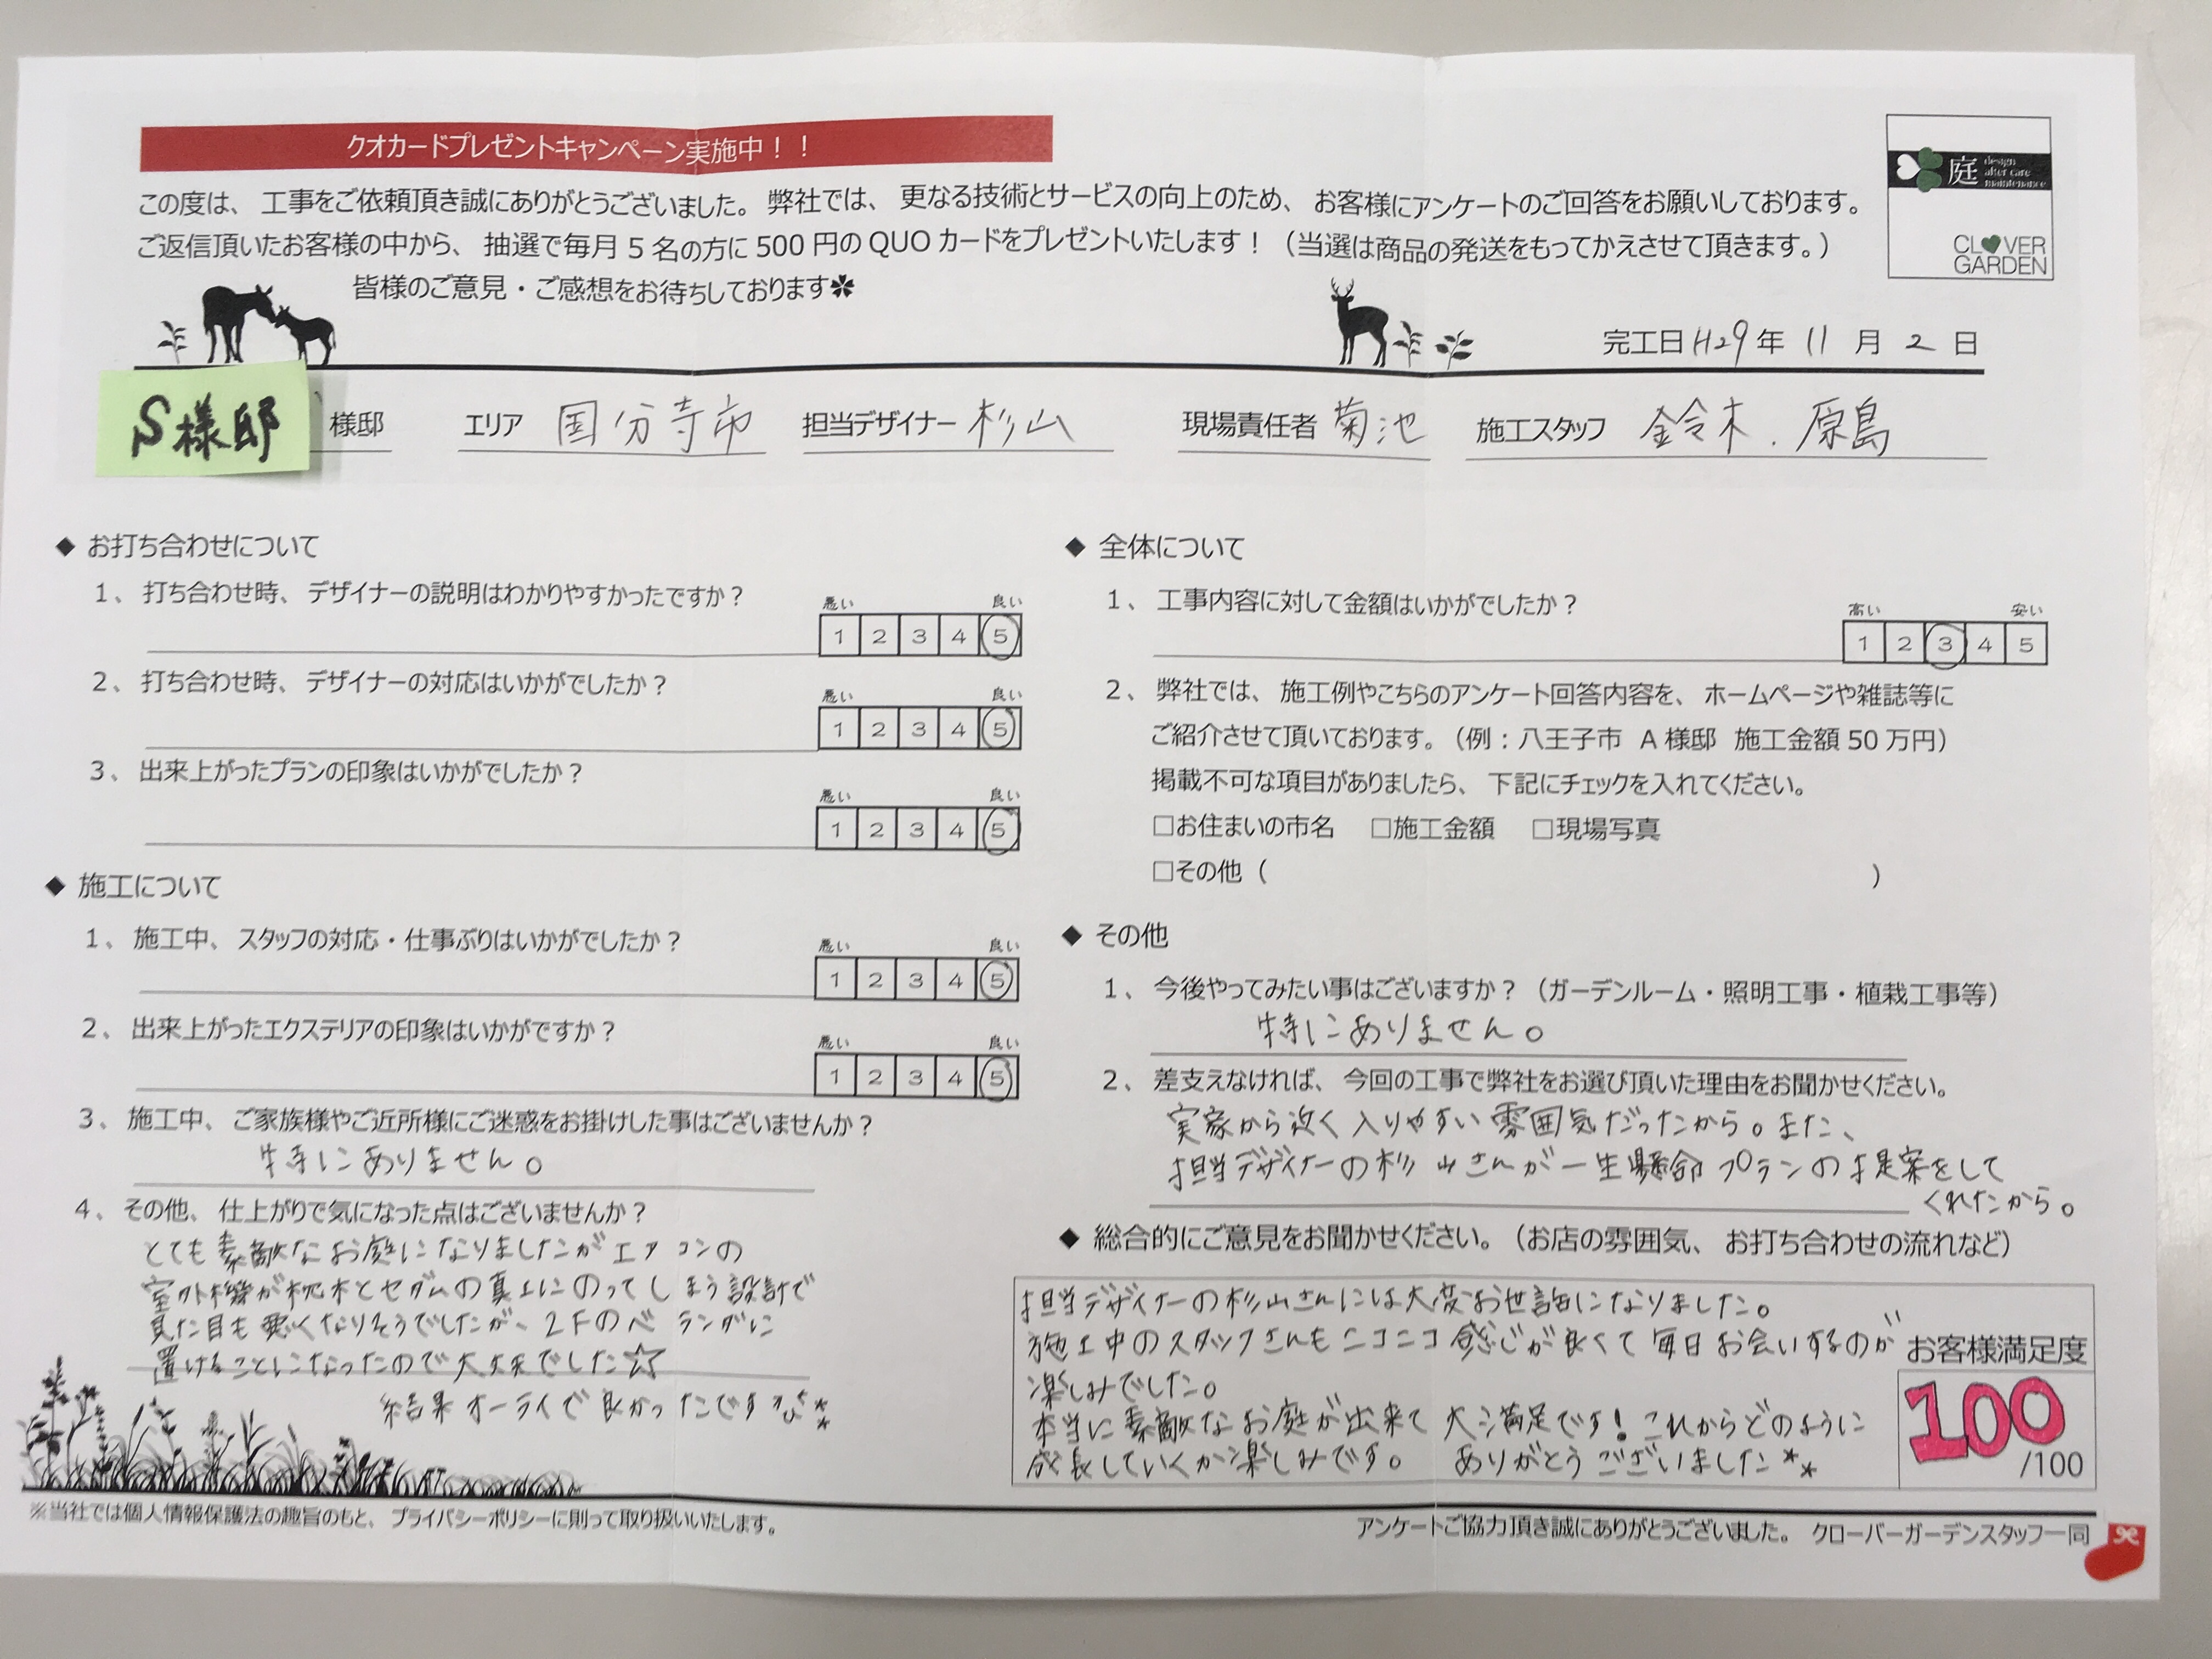 クオカードプレゼントキャンペーン実施中！！
この度は、工事をご依頼頂き誠にありがとうございました。弊社では、更なる技術とサービスの向上のため、お客様にアンケートのご回答をお願いしております。
ご返信頂いたお客様の中から、抽選で毎月５名の方に500円のQUOカードをプレゼントいたします！（当選は商品の発送をもってかえさせて頂きます。）
皆様のご意見・ご感想をお待ちしております✽
庭 design after care maintenance
CLOVER GARDEN
完工日 H29年 11月 2日
S様邸 様邸 エリア 国分寺市 担当デザイナー 杉山 現場責任者 菊池 施工スタッフ 鈴木．原島
◆ お打ち合わせについて
1、打ち合わせ時、デザイナーの説明はわかりやすかったですか？
悪い 良い
1 2 3 4 5
2、打ち合わせ時、デザイナーの対応はいかがでしたか？
悪い 良い
1 2 3 4 5
3、出来上がったプランの印象はいかがでしたか？
悪い 良い
1 2 3 4 5
◆ 施工について
1、施工中、スタッフの対応・仕事ぶりはいかがでしたか？
悪い 良い
1 2 3 4 5
2、出来上がったエクステリアの印象はいかがですか？
悪い 良い
1 2 3 4 5
3、施工中、ご家族様やご近所様にご迷惑をお掛けした事はございませんか？
特にありません。
4、その他、仕上がりで気になった点はございませんか？
とても素敵なお庭になりましたがエアコンの
室外機が枕木とセダムの真上にのってしまう設計で
見た目も悪くなりそうでしたが、2Fのベランダに
置けることになったので大丈夫でした☆
結果オーライで良かったです
◆ 全体について
1、工事内容に対して金額はいかがでしたか？
高い 安い
1 2 3 4 5
2、弊社では、施工例やこちらのアンケート回答内容を、ホームページや雑誌等に
ご紹介させて頂いております。（例：八王子市 A様邸 施工金額50万円）
掲載不可な項目がありましたら、下記にチェックを入れてください。
□お住まいの市名 □施工金額 □現場写真
□その他（ ）
◆ その他
1、今後やってみたい事はございますか？（ガーデンルーム・照明工事・植栽工事等）
特にありません。
2、差支えなければ、今回の工事で弊社をお選び頂いた理由をお聞かせください。
実家から近く入りやすい雰囲気だったから。また、
担当デザイナーの杉山さんが一生懸命プランの提案をして
くれたから。
◆ 総合的にご意見をお聞かせください。（お店の雰囲気、お打ち合わせの流れなど）
担当デザイナーの杉山さんには大変お世話になりました。
施工中のスタッフさんもニコニコ感じが良くて毎日お会いするのが
楽しみでした。
本当に素敵なお庭が出来て大満足です！これからどのように
成長していくか楽しみです。ありがとうございました**
お客様満足度
100
/100
※当社では個人情報保護法の趣旨のもと、プライバシーポリシーに則って取り扱いいたします。
アンケートご協力頂き誠にありがとうございました。クローバーガーデンスタッフ一同